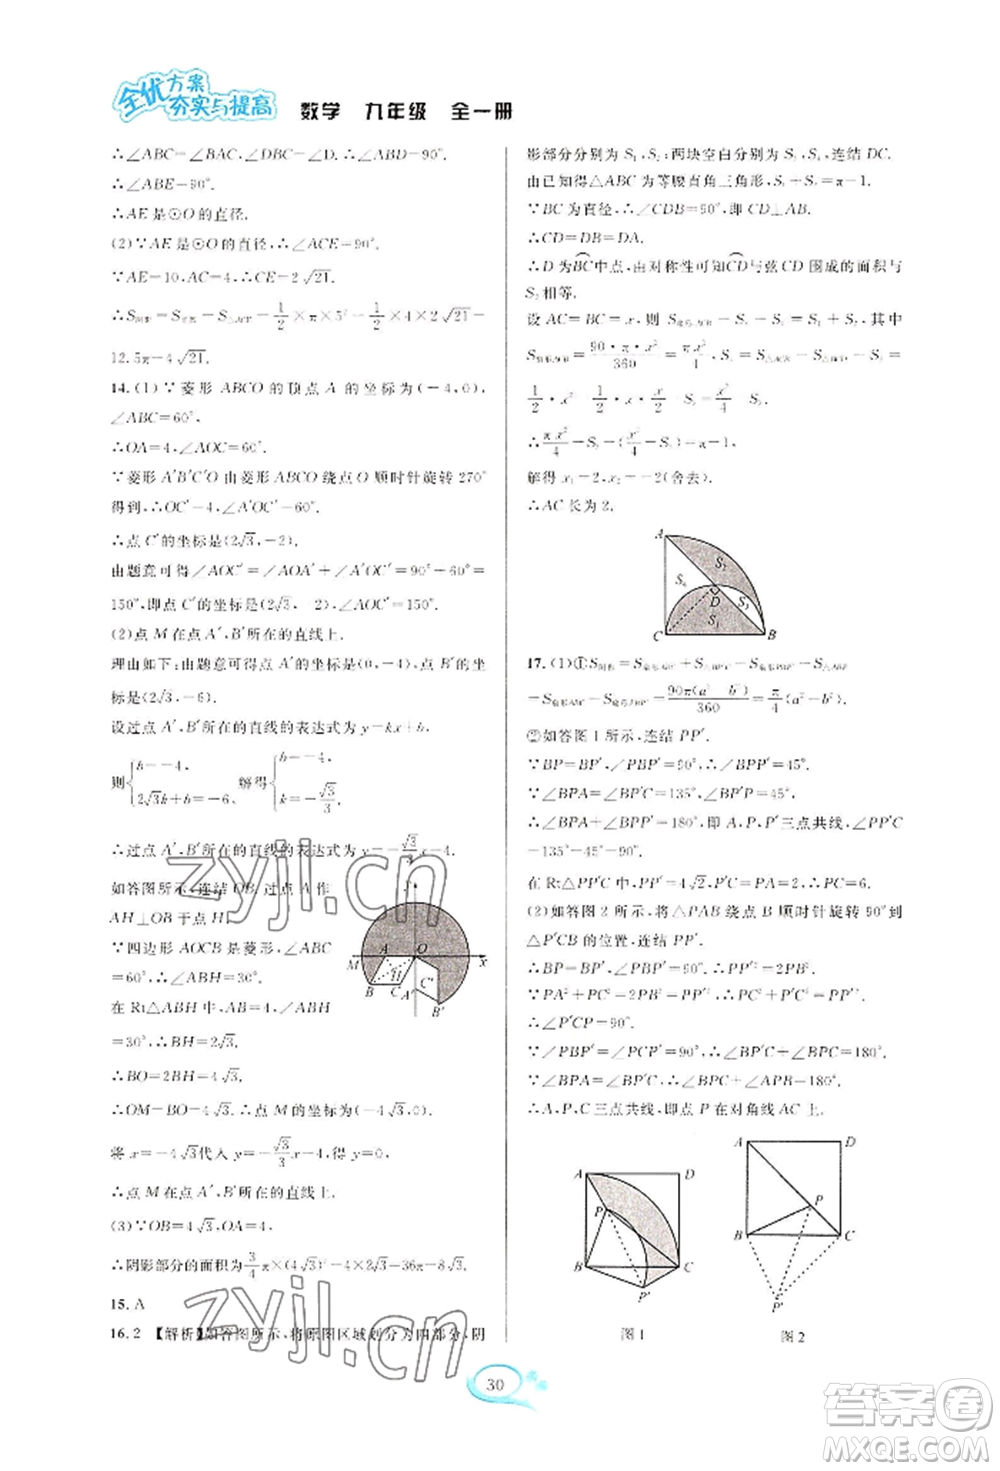 全优方案
夯实与提高
数学 九年级 全一册
∴∠ABC=∠BAC,∠DBC=∠D.∴∠ABD=90°.
∴∠ABE=90°.
∴AE是⊙O的直径.
(2)∵AE是⊙O的直径,∴∠ACE=90°.
∵AE=10,AC=4,∴CE=2√21.
∴S阴影=S半圆-S△ACE=1/2×π×5²-1/2×4×2√21=
12.5π-4√21.
14.(1)∵菱形ABCO的顶点A的坐标为(-4,0),
∠ABC=60°,
∴OA=4,∠AOC=60°.
∵菱形A′B′C′O由菱形ABCO绕点O顺时针旋转270°
得到,∴OC′=4,∠A′OC′=60°.
∴点C′的坐标是(2√3,-2).
由题意可得∠AOC′=∠AOA′+∠A′OC′=90°+60°=
150°,即点C′的坐标是(2√3,-2),∠AOC′=150°.
(2)点M在点A′,B′所在的直线上.
理由如下:由题意可得点A′的坐标是(0,-4),点B′的坐
标是(2√3,-6).
设过点A′,B′所在的直线的表达式为y=kx+b,
则{b=-4, 2√3k+b=-6, 解得{b=-4, k=-√3/3.
∴过点A′,B′所在的直线的表达式为y=-√3/3x-4.
如答图所示,连结OB,过点A作
AH⊥OB于点H.
∵四边形AOCB是菱形,∠ABC
=60°,∴∠ABH=30°.
在Rt△ABH中,AB=4,∠ABH
=30°,∴BH=2√3.
∴BO=2BH=4√3.
∴OM=BO=4√3.∴点M的坐标为(-4√3,0).
将x=-4√3代入y=-√3/3x-4,得y=0,
∴点M在点A′,B′所在的直线上.
(3)∵OB=4√3,OA=4,
∴阴影部分的面积为3/4π×(4√3)²-2×4×2√3=36π-8√3.
15.A
16.2 【解析】如答图所示,将原图区域划分为四部分,阴
M A O x
B C A′ C′ B′ H
影部分分别为S₁,S₂;两块空白分别为S₃,S₄,连结DC.
由已知得△ABC为等腰直角三角形,S₁+S₂=π-1.
∵BC为直径,∴∠CDB=90°,即CD⊥AB.
∴CD=DB=DA.
∴D为BC中点,由对称性可知CD与弦CD围成的面积与
S₃相等.
设AC=BC=x,则S扇形ACB-S₃-S₄=S₁+S₂,其中
S扇形ACB=90·π·x²/360=πx²/4,S₄=S△ACB-S₁-S₃=
1/2·x²-1/2·x²/4-S₃=x²/4-S₃
∴πx²/4-S₃-(x²/4-S₃)=π-1.
解得x₁=2,x₂=-2(舍去).
∴AC长为2.
A S₂ S₄ D S₃ S₁ C B
17.(1)①S阴影=S扇形ABC+S△BP′C-S扇形PBP′-S△ABP
=S扇形ABC-S扇形PBP′=90π(a²-b²)/360=π/4(a²-b²).
②如答图1所示,连结PP′.
∵BP=BP′,∠PBP′=90°,∴∠BPP′=45°.
∵∠BPA=∠BP′C=135°,∠BP′P=45°,
∴∠BPA+∠BPP′=180°,即A,P,P′三点共线,∠PP′C
=135°-45°=90°.
在Rt△PP′C中,PP′=4√2,P′C=PA=2,∴PC=6.
(2)如答图2所示,将△PAB绕点B顺时针旋转90°到
△P′CB的位置,连结PP′.
∵BP=BP′,∠PBP′=90°,∴PP′²=2PB².
∵PA²+PC²=2PB²=PP′²,∴P′C²+PC²=PP′².
∴∠P′CP=90°.
∵∠PBP′=∠PCP′=90°,∴∠BP′C+∠BPC=180°.
∵∠BPA=∠BP′C,∴∠BPC+∠APB=180°.
∴A,P,C三点共线,即点P在对角线AC上.
A D P B C P′
图1
A D P B C P′
图2
30
zyjl.cn
zyjl.cn
答案圈
MXQE.COM